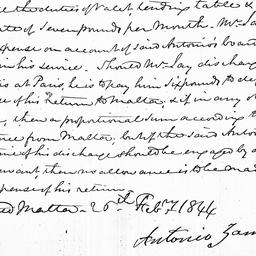 the duties of Valet, tending table &
ate of seven pounds per Month. Mr Jay
xpense on account of said Antonio's board
in his service. Should Mr Jay discharg
is at Paris, he is to pay him six pounds to de
e of his Return to Malta, & if in any ot
, then a proportional sum according t
nce from Malta, but if the said Anto
ime of his discharge should be engaged by a
ervant, then no allowance is to be mad
xpense of his return.
ted Malta - 26th Feby 1844
Antonio Zam